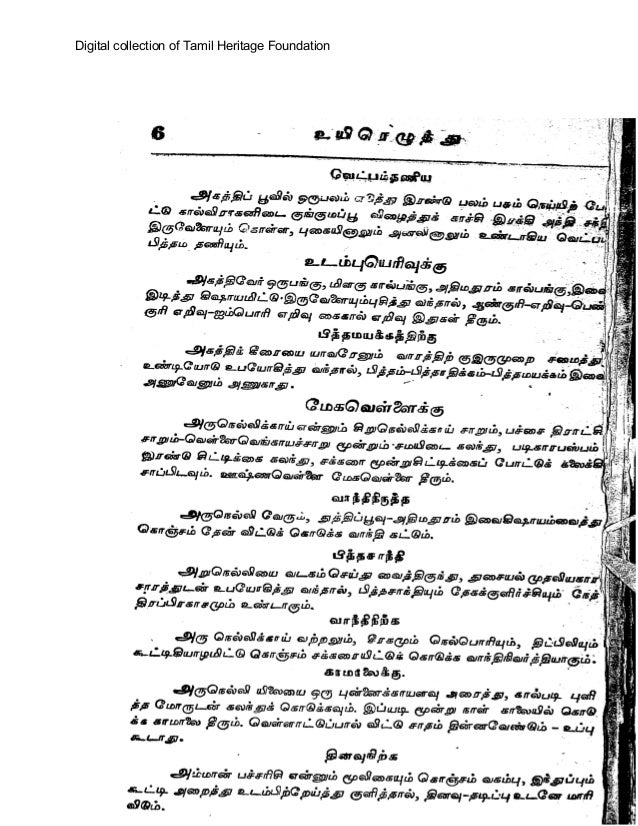 Digital collection of Tamil Heritage Foundation
6 உயிரெழுத்து
வெட்பம்தணிய
அகத்திப் பூவில் ஒருபலம் எடுத்து இரண்டு பலம் பசும் நெய்யிற் பே
ட்டு கால்விராகனிடை குங்குமப்பூ விழைத்துக் காச்சி இரக்கி அந்தி சந்தி
இருவேளையும் கொள்ள, புகையினாலும் அனலினாலும் உண்டாகிய வெட்ப
பித்தம தணியும்.
உடம்புயெரிவுக்கு
அகத்திவேர் ஒருபங்கு, மிளகு கால்பங்கு, அதிமதுரம் கால்பங்கு,இவை
இடித்து கிஷாயமிட்டு இருவேளையும்புசித்து வந்தால், ஆண்குரி-எறிவு-பெண்
குரி எறிவு-ஐம்பொரி எறிவு கைகால் எறிவு இதுகள் தீரும்.
பித்தமயக்கத்திற்கு
அகத்திக் கீரையை யாவரேனும் வாரத்திற் குஇருமுறை சமைத்து
உண்டியோடு உபயோகித்து வந்தால், பித்தம்-பித்தாதிக்கம்-பித்தமயக்கம் இவை
அணுவேனும் அணுகாது.
மேகவெள்ளைக்கு
அருநெல்லிக்காய் என்னும் சிறுநெல்லிக்காய் சாறும், பச்சை திராட்சி
சாறும்-வெள்ளைவெங்காயச்சாறு மூன்றும் சமயிடை கலந்து, படிகாரபஸ்பம்
இரண்டு சிட்டிகை கலந்து, சக்கரை மூன்றுசிட்டிகைப் போட்டுக் கலைக்கி
சாப்பிடவும். ஊஷ்ணவெள்ளை மேகவெள்ளை தீரும்.
வாந்திநிருத்த
அருநெல்லி வேரும், துத்திப்பூவு-அதிமதுரம் இவைகிஷாயம்வைத்து
கொஞ்சம் தேன் விட்டுக் கொடுக்க வாந்தி கட்டும்.
பித்தசாந்தி
அறுநெல்லியை வடகம்செய்து வைத்திருந்து, துசையல் முதலியகார
சாரத்துடன் உபயோகித்து வந்தால், பித்தசாக்தியும் தேகக்குளிர்ச்சியும் நேத்
திரப்பிரகாசமும் உண்டாகும்.
வாந்திநிற்க
அரு நெல்லிக்காய் வற்றலும், சீரகமும் நெல்பொரியும், திப்பிலியும்
கூட்டிகியாழமிட்டு கொஞ்சம் சக்கரையிட்டுக் கொடுக்க வாந்திநிவர்த்தியாகும்.
காமாலைக்கு.
அருநெல்லி யிலையை ஒரு புன்னைக்காயளவு அரைத்து, கால்படி புளி
த்த மோருடன் கலந்துக் கொடுக்கவும். இப்படி மூன்று நாள் காலையில் கொடு
க்க காமாலை தீரும். வெள்ளாட்டுப்பால் விட்டு சாதம் தின்னவேண்டும் - உப்பு
கூடாது.
தினவுநிற்க
அம்மான் பச்சரிசி என்னும் மூலிகையும் கொஞ்சம் வசம்பு, இந்துப்பும்
கூட்டி அறைத்து உடம்பிற்றேய்த்து குளித்தால், தினவு-தடிப்பு உடனே மாரி
விடும்.